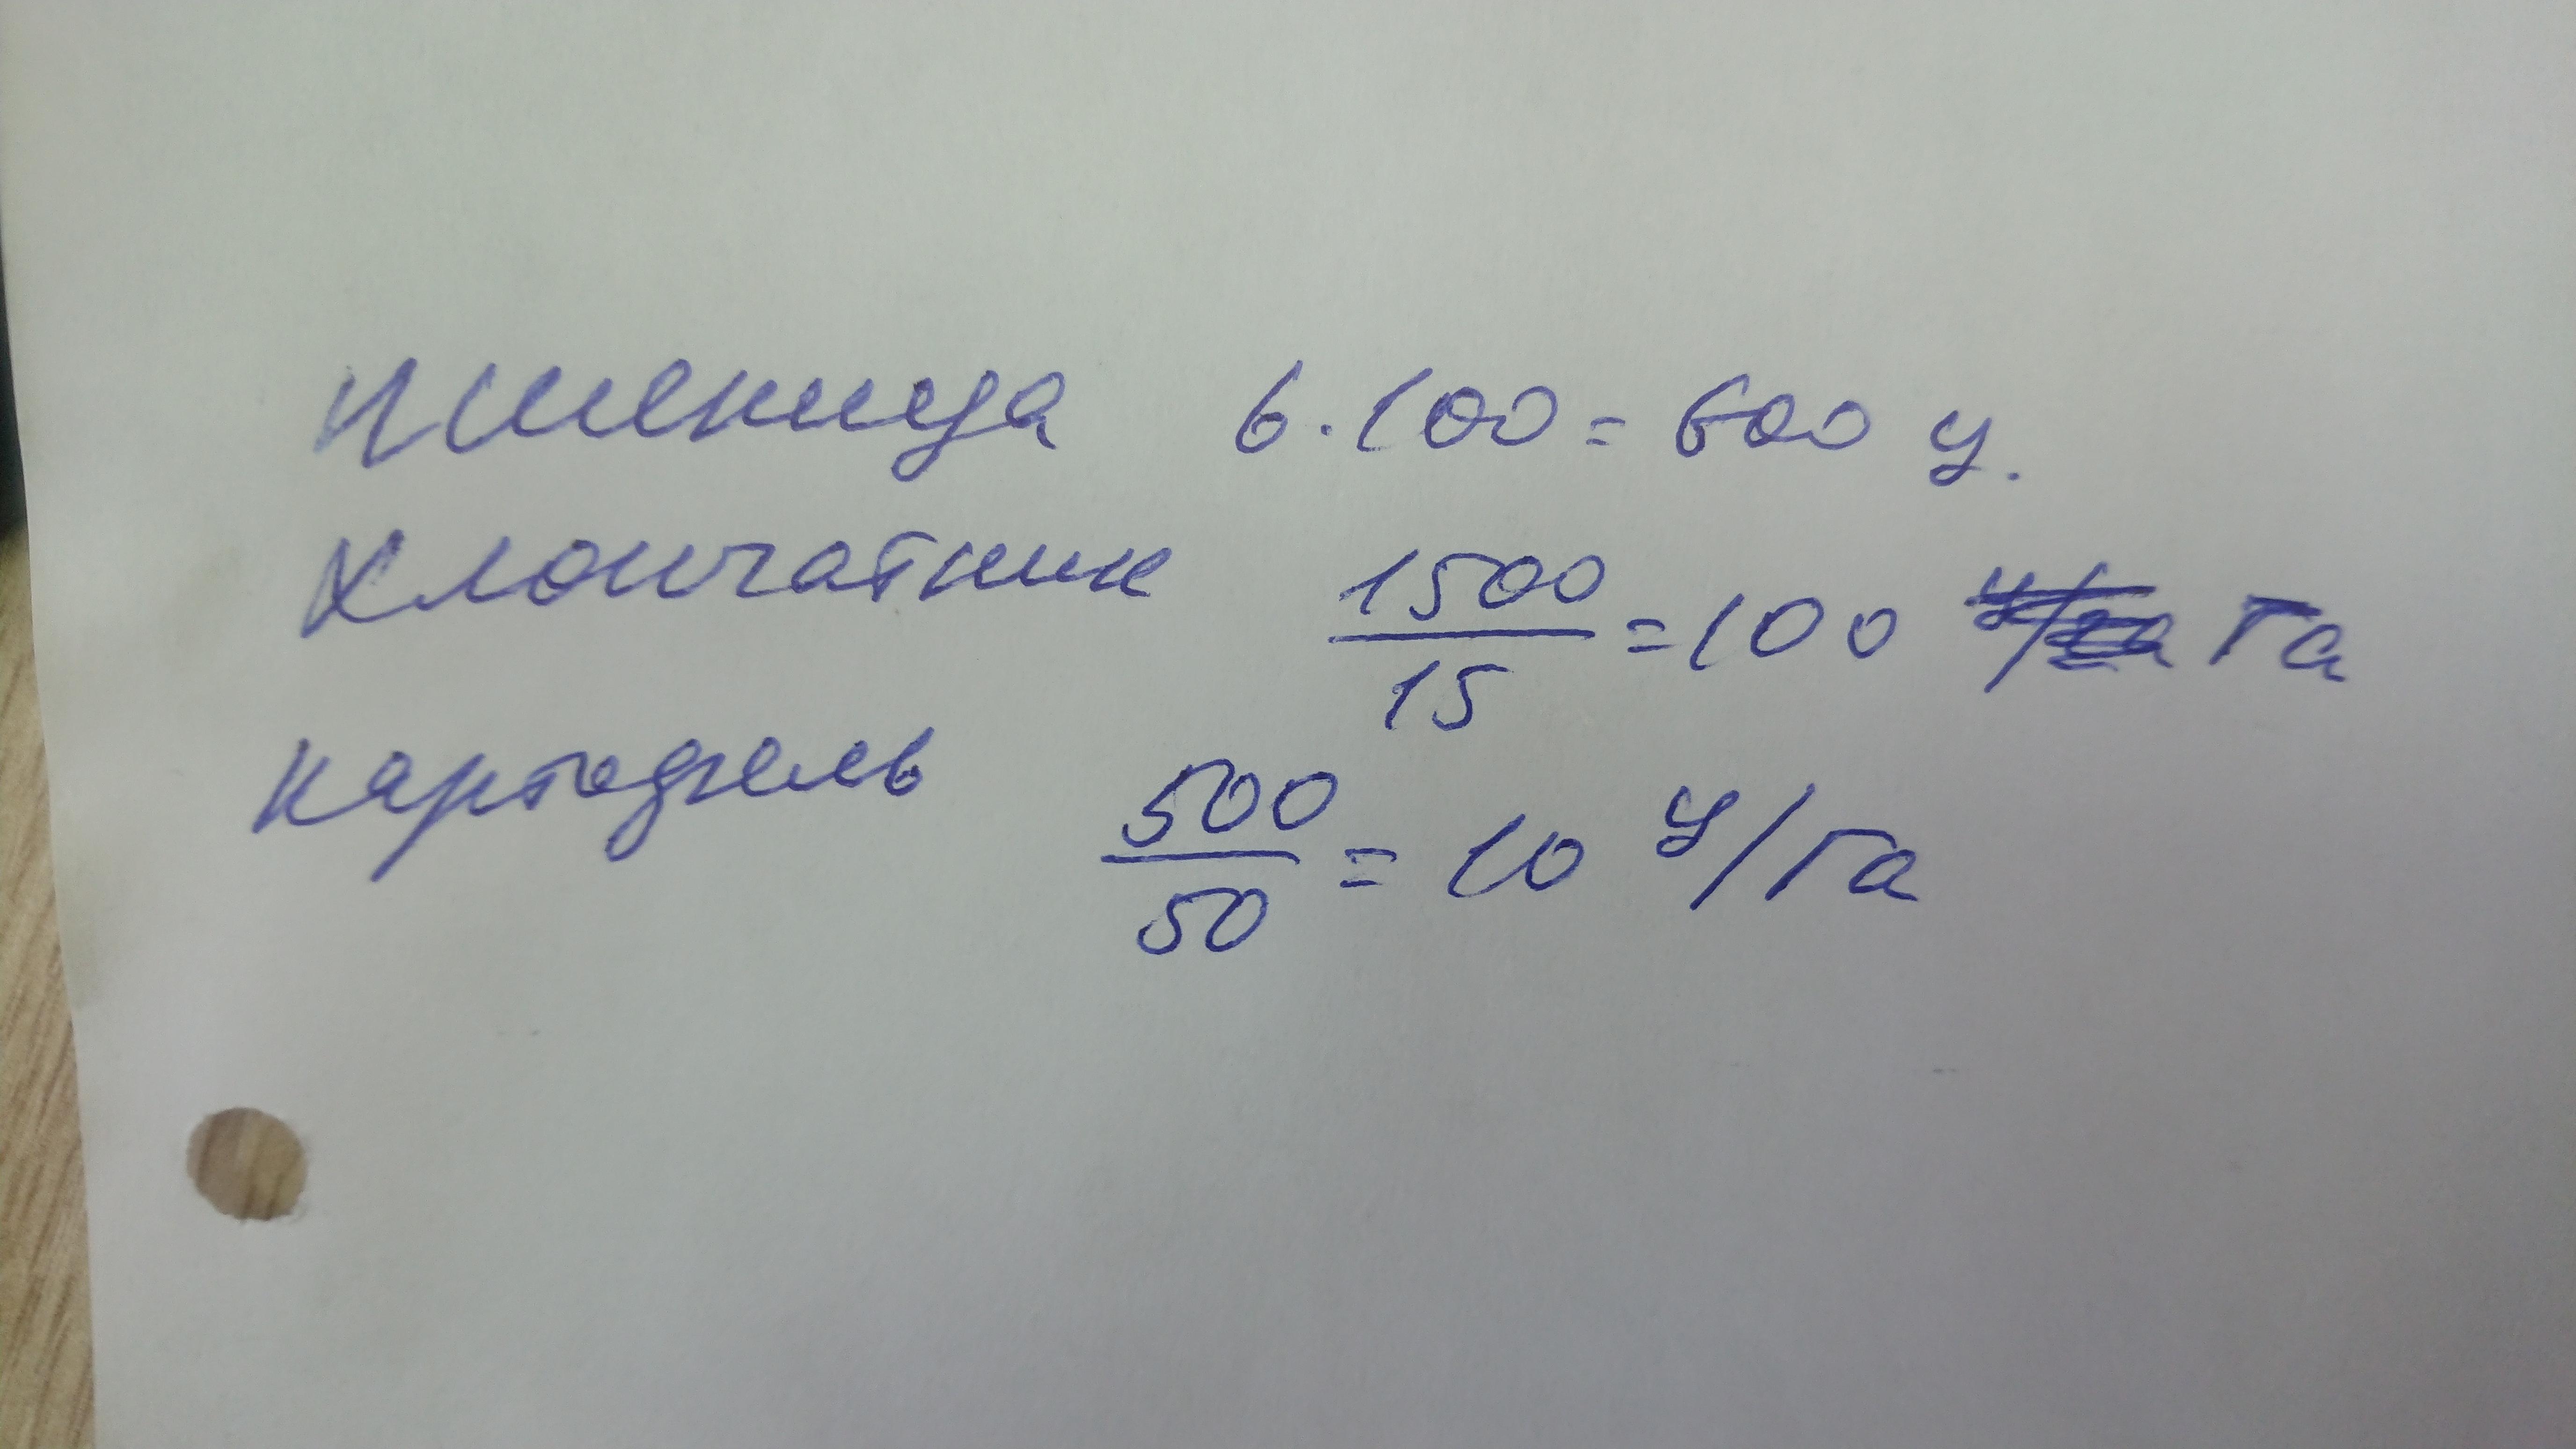 пшеница 6·100=600 ц.
хлопчатник 1500/15=100 га
картофель 500/50=10 ц/га